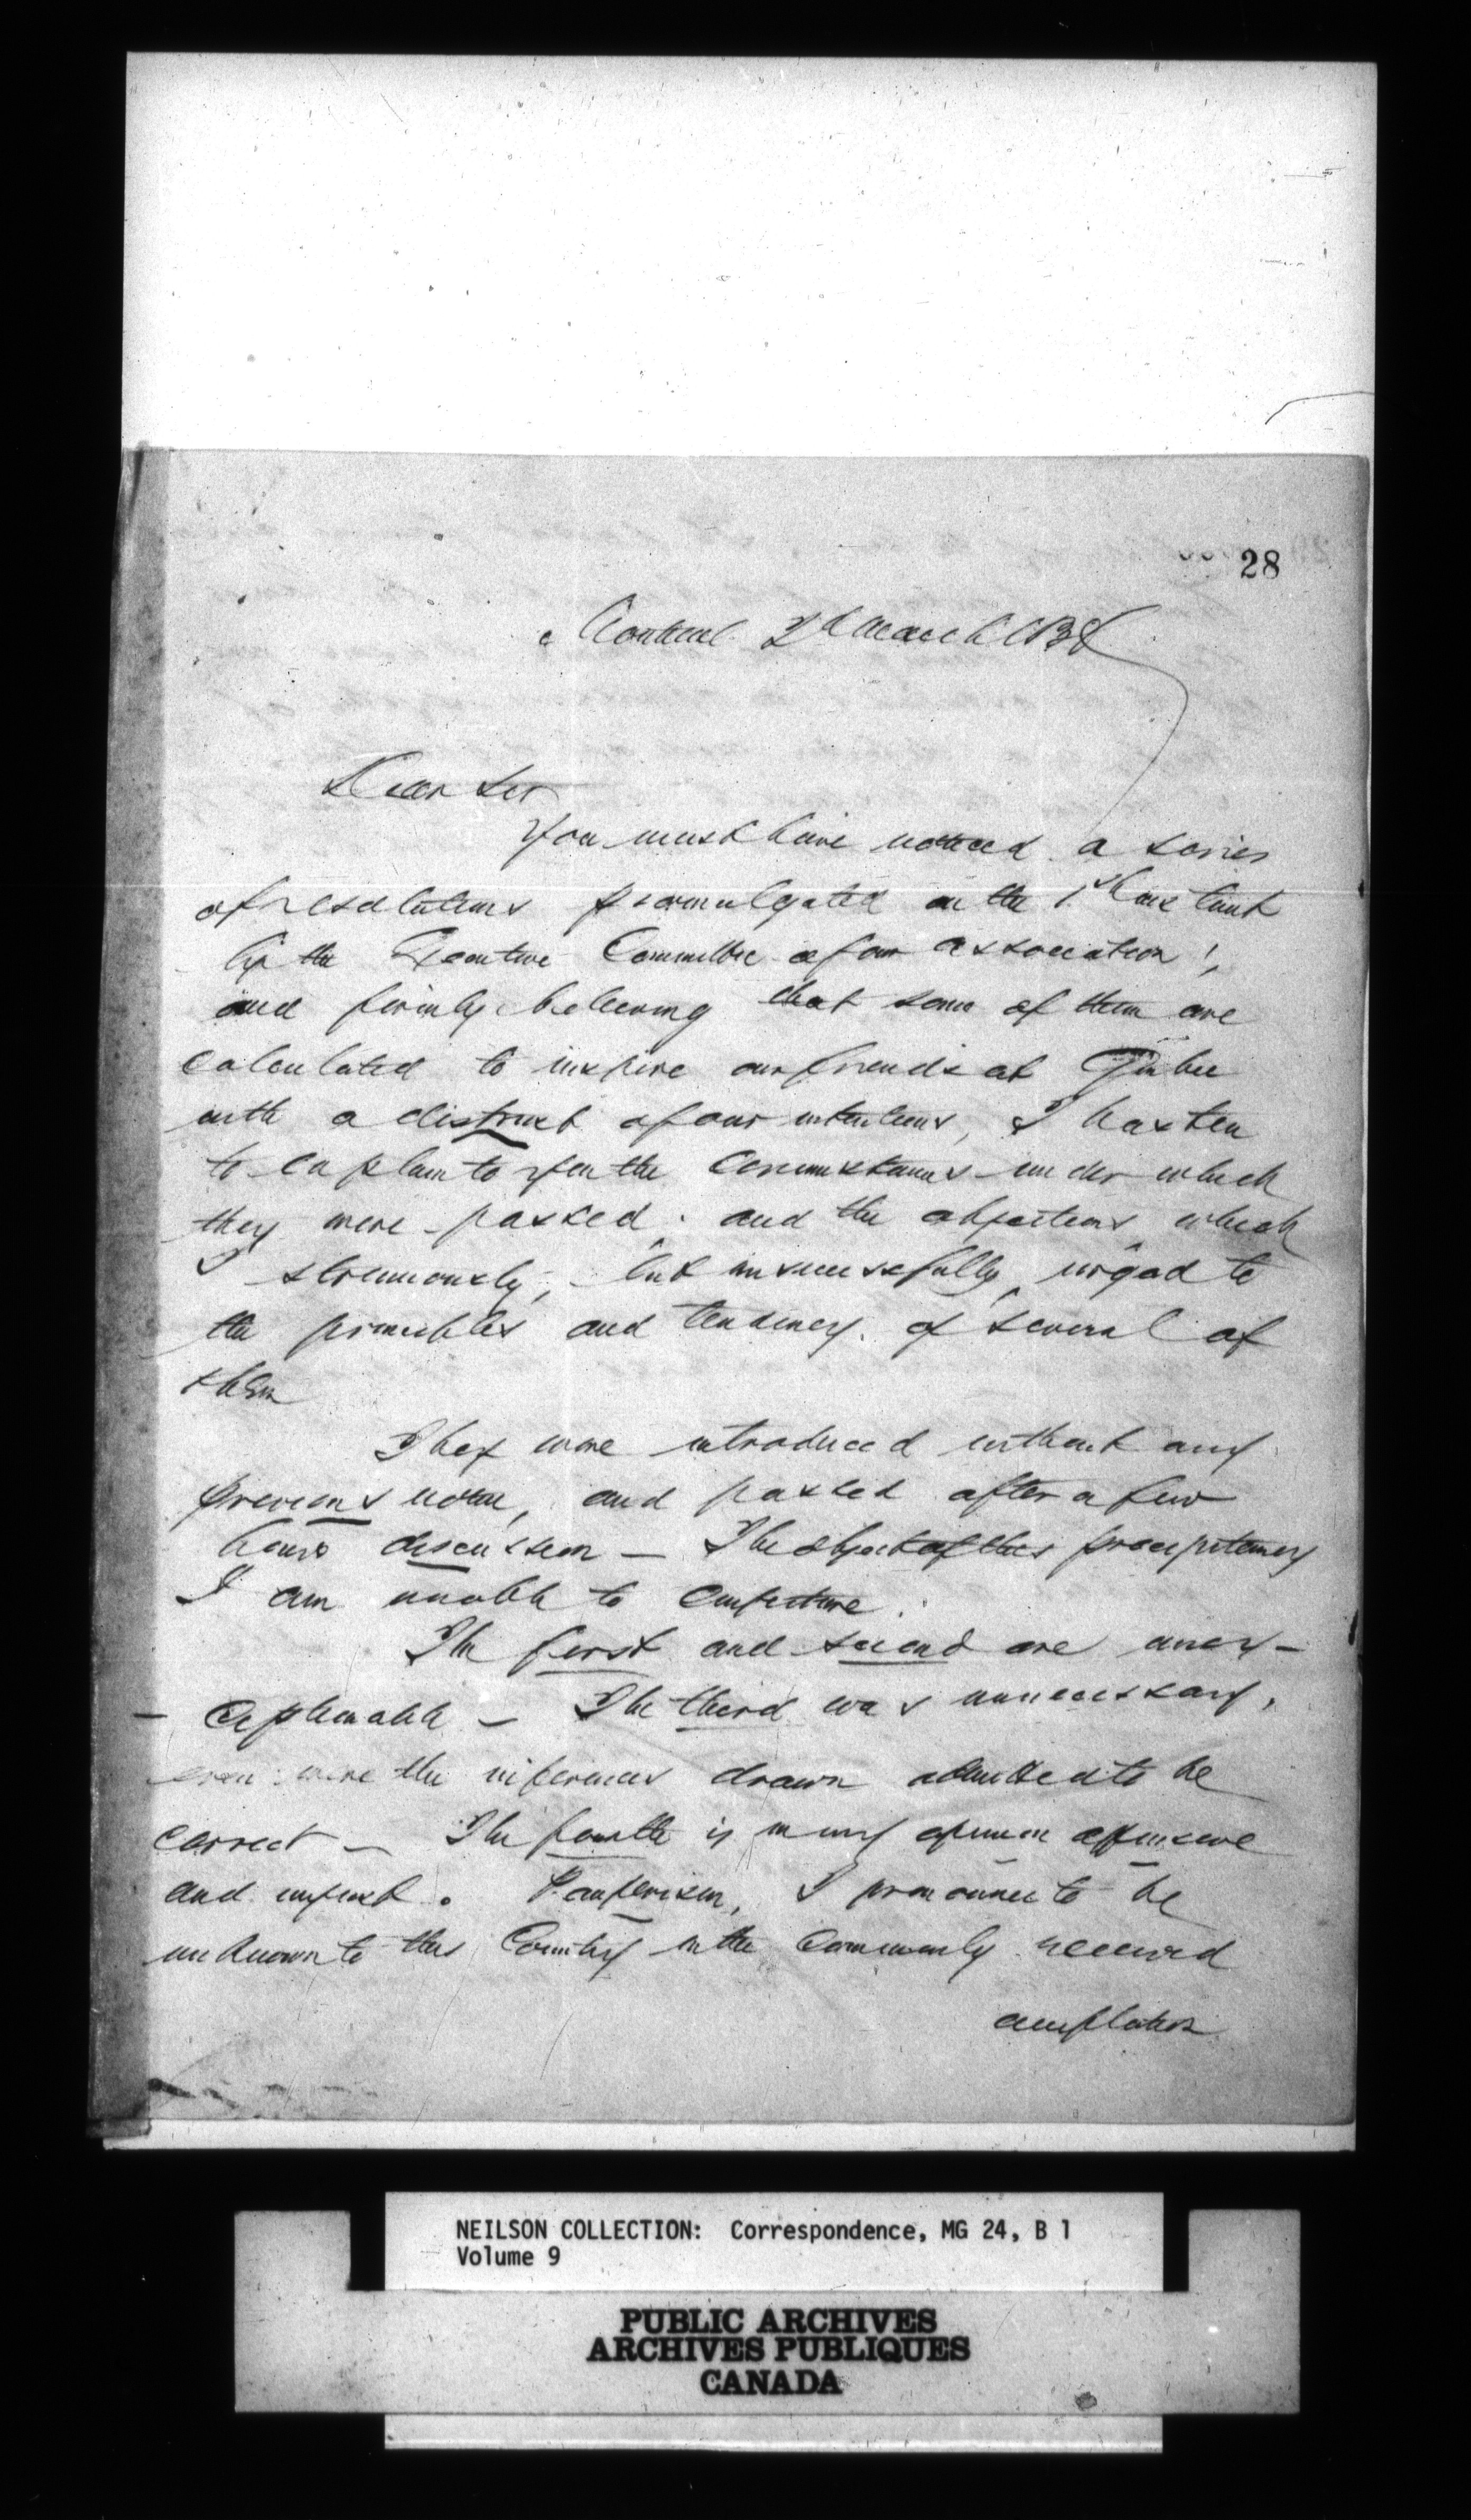 28
Montreal 2d March 183
Dear Sir
You must have noticed a series
of resolutions promulgated on the 1st instant
by the Executive Committee of our association,
and firmly believing that some of them are
calculated to inspire our friends at Quebec
with a distrust of our intentions, I hasten
to explain to you the circumstances under which
they were passed. and the objections which
I strenuously, but unsuccessfully, urged to
the principles and tendency of several of
them
They were introduced without any
previous notice, and passed after a few
hours discussion — The object of this precipitancy
I am unable to conjecture.
The first and second are unex-
- ceptionable — The third was unnecessary,
even were the inferences drawn admitted to be
correct — The fourth is in my opinion offensive
and unjust. Pauperism, I pronounce to be
unknown to this Country in the commonly received
acceptation
NEILSON COLLECTION: Correspondence, MG 24, B 1
Volume 9
PUBLIC ARCHIVES
ARCHIVES PUBLIQUES
CANADA